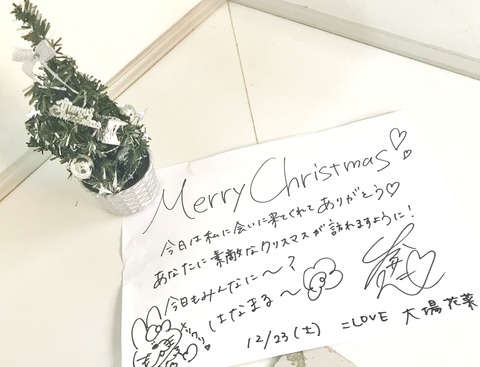 Merry Christmas
今日は私に会いに来てくれてありがとう
あなたに素敵なクリスマスが訪れますように!
今日もみんなに〜?
はなまる〜
12/23(土) =LOVE 大場花菜